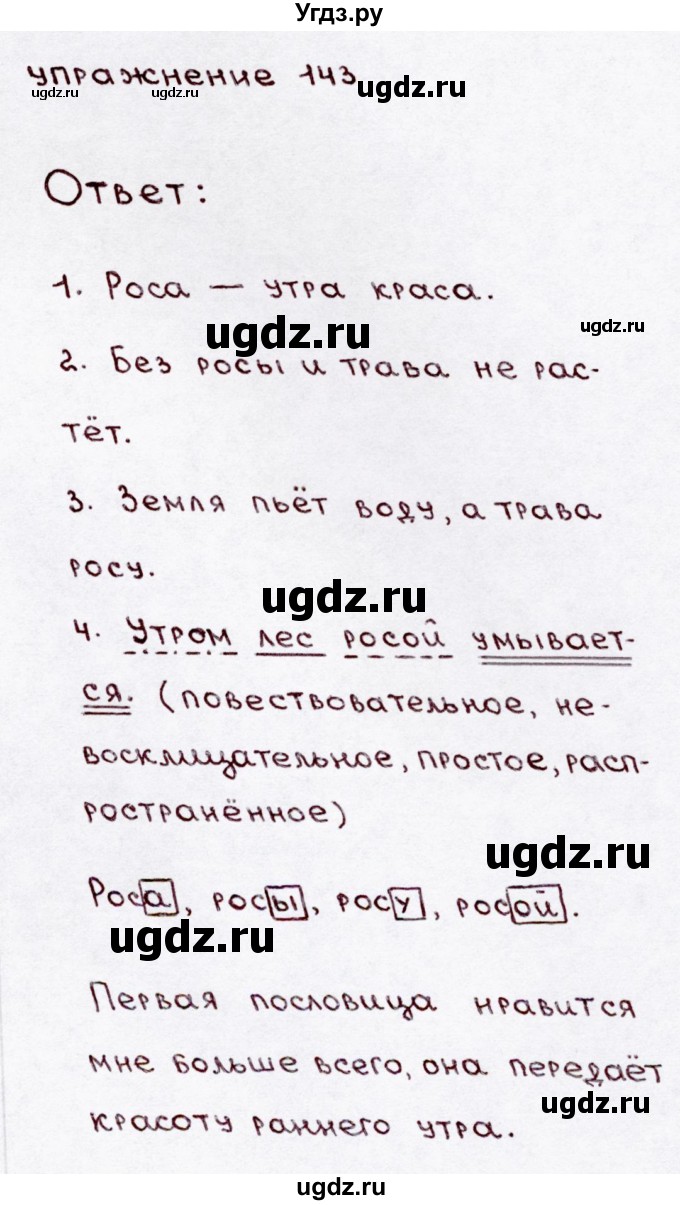 Угдз.ру
упражнение 143
ugdz.ru ugdz.ru ugdz.ru
Ответ:
1. Роса — утра краса.
ugdz.ru ugdz.ru
2. Без росы и трава не рас-
тёт.
3. Земля пьёт воду, а трава
росу.
ugdz.ru
4. Утром лес росой умывает-
ся. (повествовательное, не-
восклицательное, простое, расп-
ространённое)
ugdz.ru
Роса, росы, росу, росой.
ugdz.ru
Первая пословица нравится
мне больше всего, она передаёт
ugdz.ru
красоту раннего утра.
ugdz.ru